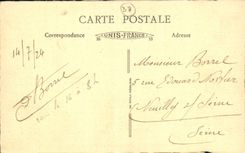 38
CARTE POSTALE
Correspondance
UNIS-FRANCE
Adresse
14/7/24
Borrel
Monsieur Borrel
5 rue Edouard Nortier
Neuilly s/ Seine
Seine